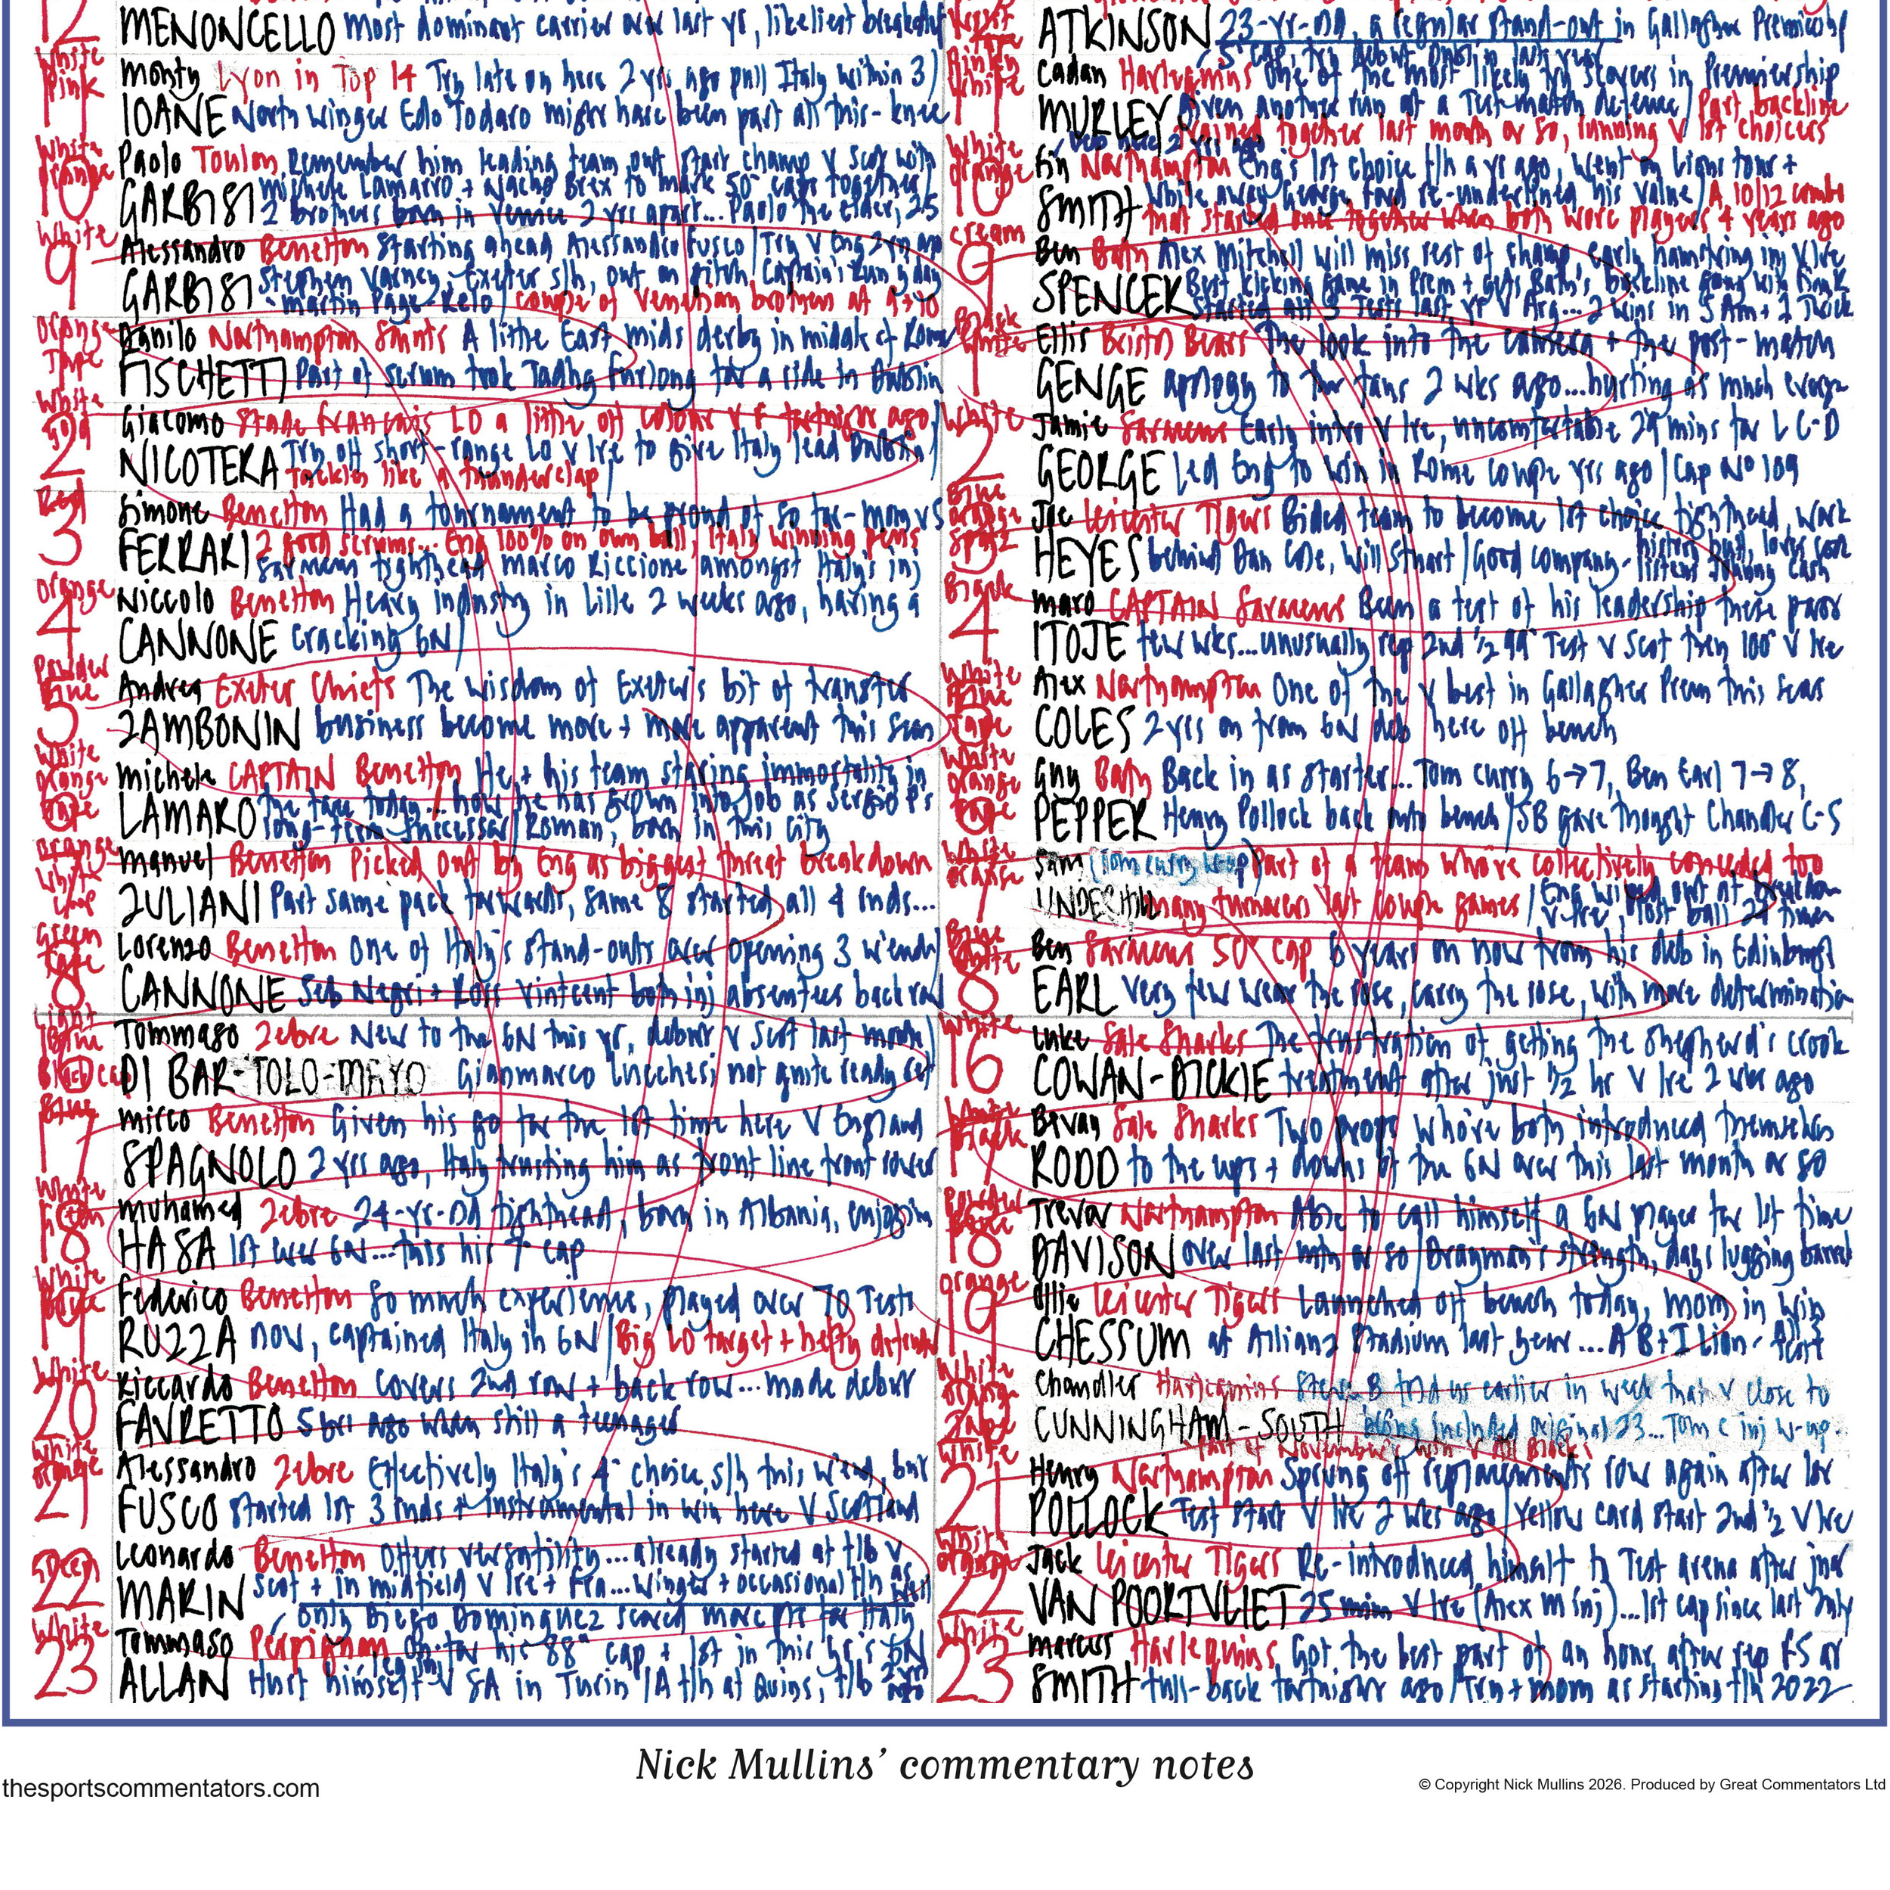 12 MENONCELLO most dominant carrier over last yr, likeliest breakdown
White
Pink
11
Monty Lyon in Top 14 Try late on here 2 yrs ago pull Italy within 3
IOANE North winger Edo Todaro might have been part of this - knee
White
Orange
10
Paolo Toulon Remember him leading team out start champ v Scot with
Michele Lamaro + Nacho Brex to mark 50 caps together
GARBISI 2 brothers born in Venice 2 yrs apart... Paolo the elder, 25
White
9
Alessandro Benetton Starting ahead Alessandro Fusco / Try v Eng 2 yrs ago
Stephen Varney Exeter s/h, out on pitch Captain's Run yday
GARBISI - Martin Page-Relo / couple of Venetian brothers at 9 + 10
Orange
Tape
1
Danilo Northampton Saints A little East mids derby in midst of Rome
FISCHETTI Part of scrum took Tadhg Furlong for a ride in Dublin
White
Gold
2
Giacomo Stade Francais LO a little off colour v F fortnight ago
Try off short-range LO v Ire to give Italy lead Dublin
NICOTERA Tackles like a thunderclap
Red
3
Simone Benetton Had a tournament to be proud of so far - mom v S
FERRARI 2 good scrums... Eng 100% on own ball, Italy winning pens
Saracens tighthead Marco Riccioni amongst Italy's inj
Orange
4
Niccolo Benetton Heavy industry in Lille 2 weeks ago, having a
CANNONE cracking 6N
Powder
Blue
5
Andrea Exeter Chiefs The wisdom of Exeter's bit of transfer
ZAMBONIN business become more + more apparent this seas
White
Orange
Tape
6
Michele CAPTAIN Benetton He + his team staring immortality in
the face today... how he has grown into job as Sergio P's
LAMARO long-term successor / Roman, born in this city
Orange
White
7
Manuel Benetton Picked out by Eng as biggest threat breakdown
ZULIANI Part same pack forwards, same 8 started all 4 rnds...
Green
Tape
8
Lorenzo Benetton One of Italy's stand-outs over opening 3 w'ends
CANNONE Seb Negri + Ross Vintcent both inj absentees back row
Light
Blue
Black cap
16
Tommaso Zebre New to the 6N this yr, debut v Scot last month
DI BARTOLOMEO Gianmarco Lucchesi not quite ready yet
Blue
17
Mirco Benetton Given his go for the 1st time here v England
SPAGNOLO 2 yrs ago, Italy trusting him as front line front rower
White
18
Muhamed Zebre 24-yr-old tighthead, born in Albania, enjoying
HASA 1st ever 6N... this his 7 cap
White
Blue
19
Federico Benetton So much experience, played over 70 Tests
RUZZA now, captained Italy in 6N / Big LO target + hefty defender
White
20
Riccardo Benetton Covers 2nd row + back row... made debut
FAVRETTO 5 yrs ago when still a teenager
White
Orange
21
Alessandro Zebre Effectively Italy's 4 choice s/h this w'end, but
FUSCO started 1st 3 rnds + instrumental in win here v Scotland
Green
22
Leonardo Benetton Offers versatility... already started at f/b v
MARIN Scot + in midfield v Ire + Fra... Winger + occasional f/h as
White
23
only Diego Dominguez scored more pts for Italy
Tommaso Perpignan On for his 88 cap + 1st in this yr's 6N
ALLAN Hurt himself v SA in Turin / A f/h at Quins, f/b 2 yrs ago
12
ATKINSON 23-yr-old, a regular stand-out in Gallagher Premiership
5 cap, try debut Dublin last year
11
Cadan Harlequins One of the most likely try scorers in Premiership
MURLEY given another run at a Test-match defence / Part backline
trained together last month or so, running v 1st choicers
White
Orange
10
Fin Northampton Eng's 1st choice f/h a yr ago, went on Lions tour +
SMITH while away George Ford re-underlined his value / A 10/12 combo
that started once together when both were players 4 years ago
Cream
9
Ben Bath Alex Mitchell will miss rest of champ, early hamstring inj v Ire
SPENCER Best kicking game in Prem + gets Bath's backline going with Fink
Started all 3 Tests last yr v Arg... 2 wins in S Am + 1 Twick
Black
White
1
Ellis Bristol Bears The look into the camera + the post-match
GENGE apology to the fans 2 wks ago... hurting as much everyone
White
2
Jamie Saracens Early intro v Ire, uncomfortable 29 mins for L C-D
GEORGE Led Eng to win in Rome couple yrs ago / Cap No 109
Blue
Orange
Spots
3
Joe Leicester Tigers Bided team to become 1st choice tighthead, work
HEYES behind Dan Cole, Will Stuart / Good company - history buff, loves
listens Johnny Cash
Black
4
Maro CAPTAIN Saracens Been a test of his leadership these past
ITOJE few wks... unusually rep 2nd ½ 99 Test v Scot then 100 v Ire
White
Blue
Tape
5
Alex Northampton One of the v best in Gallagher Prem this seas
COLES 2 yrs on from 6N deb here off bench
White
Orange
Tape
6
Guy Bath Back in as starter... Tom Curry 6→7, Ben Earl 7→8,
PEPPER Henry Pollock back onto bench / SB gave thought Chandler C-S
White
Orange
7
Sam (Tom Curry w-up) Part of a team who're collectively conceded too
UNDERHILL many turnovers last couple games / Eng wiped out at breakdown
v Ire, lost ball
Blue
White
8
Ben Saracens 50 cap 6 years on now from his deb in Edinburgh
EARL Very few wear the rose, carry the rose, with more determination
White
16
Luke Sale Sharks The frustration of getting the shepherd's crook
COWAN-DICKIE treatment after just ½ hr v Ire 2 wks ago
White
Black
17
Bevan Sale Sharks Two props who've both introduced themselves
RODD to the ups + downs of the 6N over this last month or so
Powder
Blue
18
Trevor Northampton Able to call himself a 6N player for 1st time
DAVISON over last mth or so / Drayman's strength, days lugging barrels
Orange
19
Ollie Leicester Tigers Launched off bench today, mom in win
CHESSUM at Allianz Stadium last year... A B+I Lion
White
Orange
Tape
20
Chandler Harlequins Steve B told us earlier in week that v close to
CUNNINGHAM-SOUTH being included original 23... Tom C inj w-up
White
21
Part of November's win v All Blacks
Henry Northampton Sprung off replacements row again after 1st
POLLOCK Test start v Ire 2 wks ago / Yellow card start 2nd ½ v Ire
White
Orange
22
Jack Leicester Tigers Re-introduced himself to Test arena after just
VAN POORTVLIET 25 mins v Ire (Alex M inj)... 1st cap since last July
White
23
Marcus Harlequins Got the best part of an hour after rep FS at
SMITH full-back fortnight ago / Try + mom as starting f/h 2022
Nick Mullins’ commentary notes
thesportscommentators.com
© Copyright Nick Mullins 2026. Produced by Great Commentators Ltd